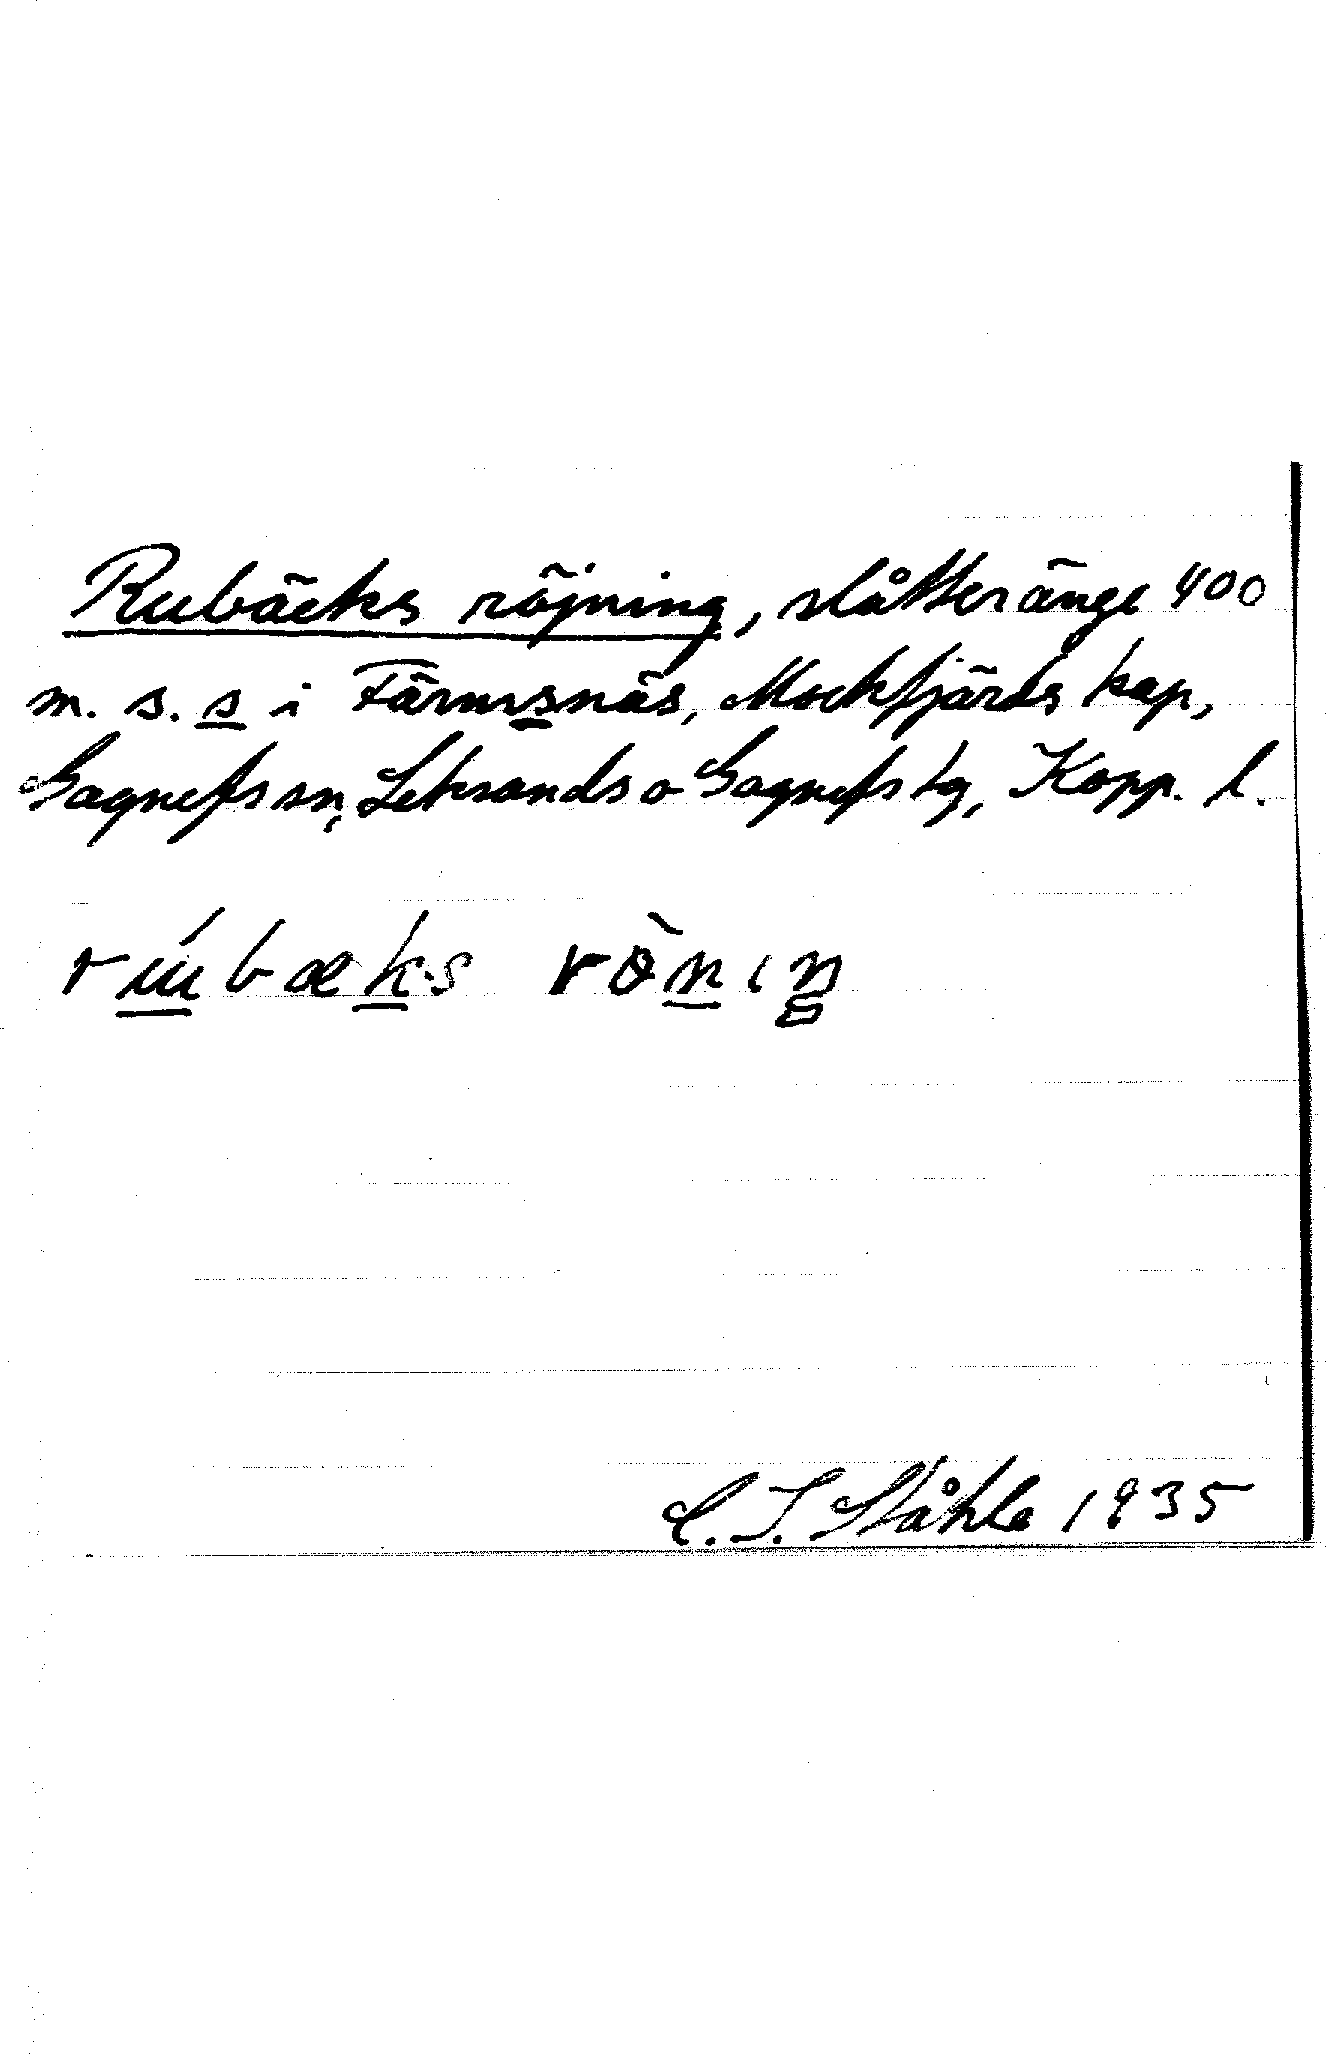 Rubäcks röjning, slåtteränge 400
m. s. s i Färmsnäs, Mockfjärds kap,
Gagnefs sn, Leksands o Gagnefs tg, Kopp. l.
rúbæks rö̀niŋ
C. I. Ståhle 1935